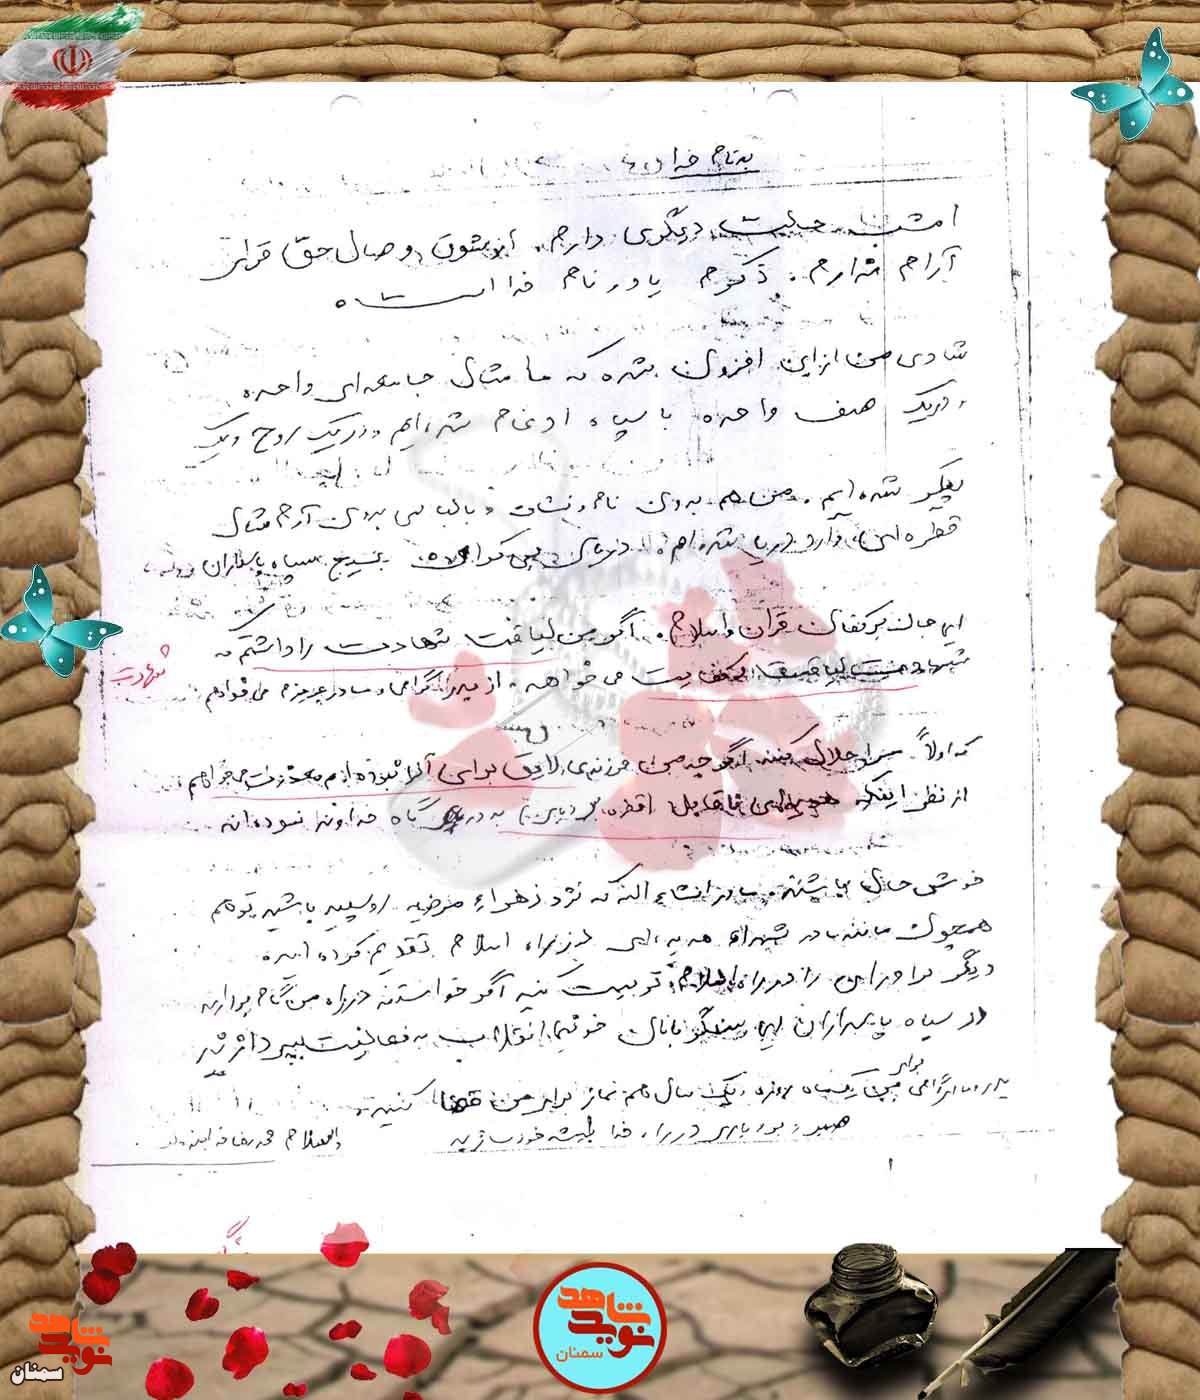 به نام خدا
امشب حالت دیگری دارم. از شوق وصال حق قراری
آرام ندارم. ذکرم یاور نام خدا است.
شادی من از این افزون شده که ما مثال جامعه‌ای واحده
و در یک هدف واحده با سپاه ادغام شده‌ایم و در یک روح و یک
پیکر شده‌ایم. من هم بدون نام و نشان و با لباسی بدون آرم مثال
قطره‌ای وارد دریا شده‌ام. دریای بی کران بسیج سپاه پاسداران
این جان بر کفان قرآن و اسلام. اگر من لیاقت شهادت را داشتم که
شهادت
شهادت لیاقت می‌خواهد. از پدر گرامی و مادر عزیزم می‌خواهم
که اولاً مرا حلال کنند اگر چه من فرزندی لایق برای آنها نبوده‌ام معذرت می‌خواهم
از نظر اینکه هدیه‌ای ناقابل به درگاه خداوند نموده‌اند
خوشحال باشند. مادر انشاء الله که نزد زهراء مرضیه روسپید باشید تو هم
همچون مانند مادر شهداء هدیه‌ای در راه اسلام تقدیم کرده‌ای
دیگر برادرانم را در راه اسلام تربیت کنید اگر خواستند در راه من گام بردارند
در سپاه پاسداران این سنگربانان خونین انقلاب به فعالیت بپردازند
پدر و مادر گرامی برای من یک ماه روزه و یک سال هم نماز برای من قضا کنید
صبر و بردباری در راه خدا پیشه خود سازید
والسلام محمدرضا
نوید شاهد
سمنان
نوید شاهد
سمنان